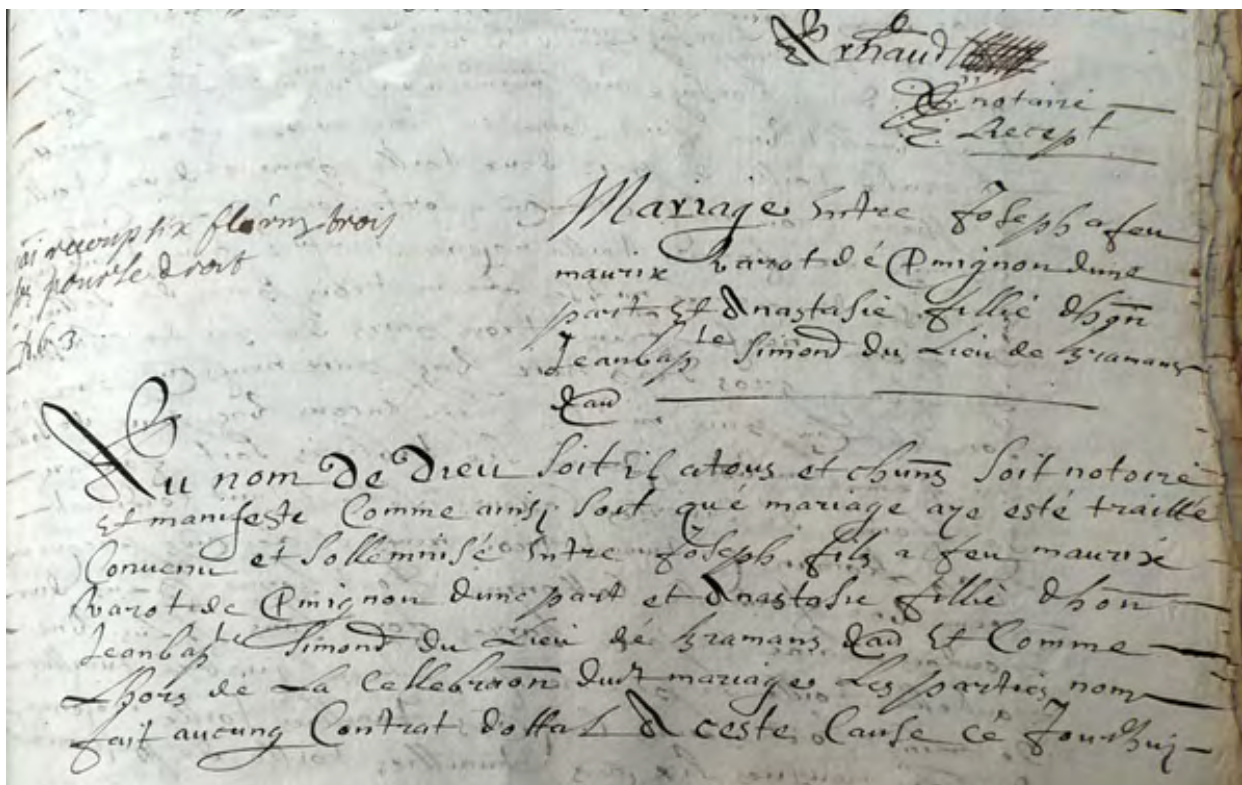 Arnaud
notaire
Recept
j'ai receu p six florins trois
pour le droit
Mariage Entre Joseph a feu
maurix Varot dé Epmignon dune
part Et Anastasie fillié dhon
Jeanbapte Simond du Lieu de bramans
daud
Au nom De Dieu Soit il atous et chuns Soit notoire
Et manifeste Comme ainsi Soit qué mariage aye esté traitté
Convenu et Sollemnisé Entre Joseph fils a feu maurix
Varot de Epmignon dune part et Anastasie fillié dhon
Jeanbapte Simond du Lieu dé bramans daud Et Comme
Lhors dé La Cellebraon dudt mariage Les parties nom
fait aucung Contrat dottal A ceste Cause cé Jourdhuy